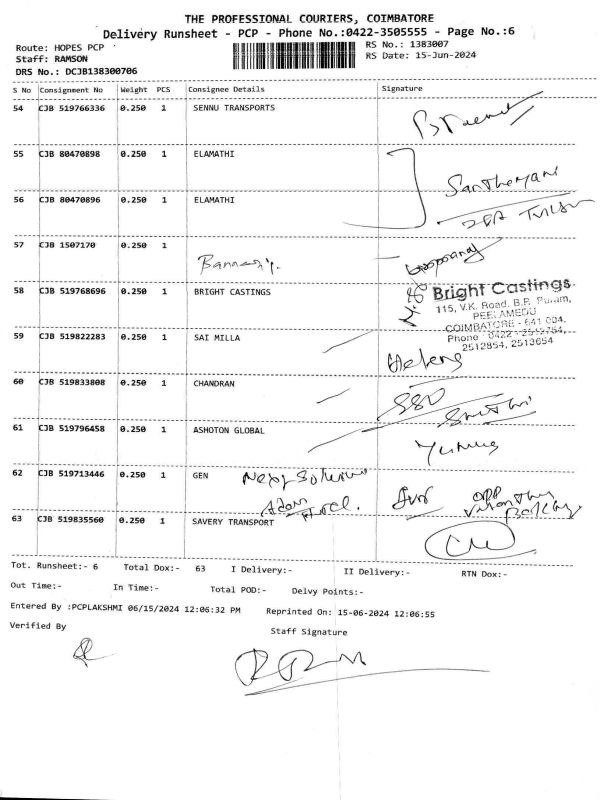 THE PROFESSIONAL COURIERS, COIMBATORE
Delivery Runsheet - PCP - Phone No.:0422-3505555 - Page No.:6
Route: HOPES PCP
RS No.: 1383007
Staff: RAMSON
RS Date: 15-Jun-2024
DRS No.: DCJB138300706
S No Consignment No Weight PCS Consignee Details Signature
54 CJB 519766336 0.250 1 SENNU TRANSPORTS
55 CJB 80470898 0.250 1 ELAMATHI
56 CJB 80470896 0.250 1 ELAMATHI
57 CJB 1507170 0.250 1
58 CJB 519768696 0.250 1 BRIGHT CASTINGS
Bright Castings
115, V.K. Road, B.R. Puram,
PEELAMEDU
COIMBATORE - 641 004.
Phone : 0422
2512854, 2513654
59 CJB 519822283 0.250 1 SAI MILLA
60 CJB 519833808 0.250 1 CHANDRAN
61 CJB 519796458 0.250 1 ASHOTON GLOBAL
62 CJB 519713446 0.250 1 GEN
63 CJB 519835560 0.250 1 SAVERY TRANSPORT
Tot. Runsheet:- 6 Total Dox:- 63 I Delivery:- II Delivery:- RTN Dox:-
Out Time:- In Time:- Total POD:- Delvy Points:-
Entered By :PCPLAKSHMI 06/15/2024 12:06:32 PM Reprinted On: 15-06-2024 12:06:55
Verified By
Staff Signature